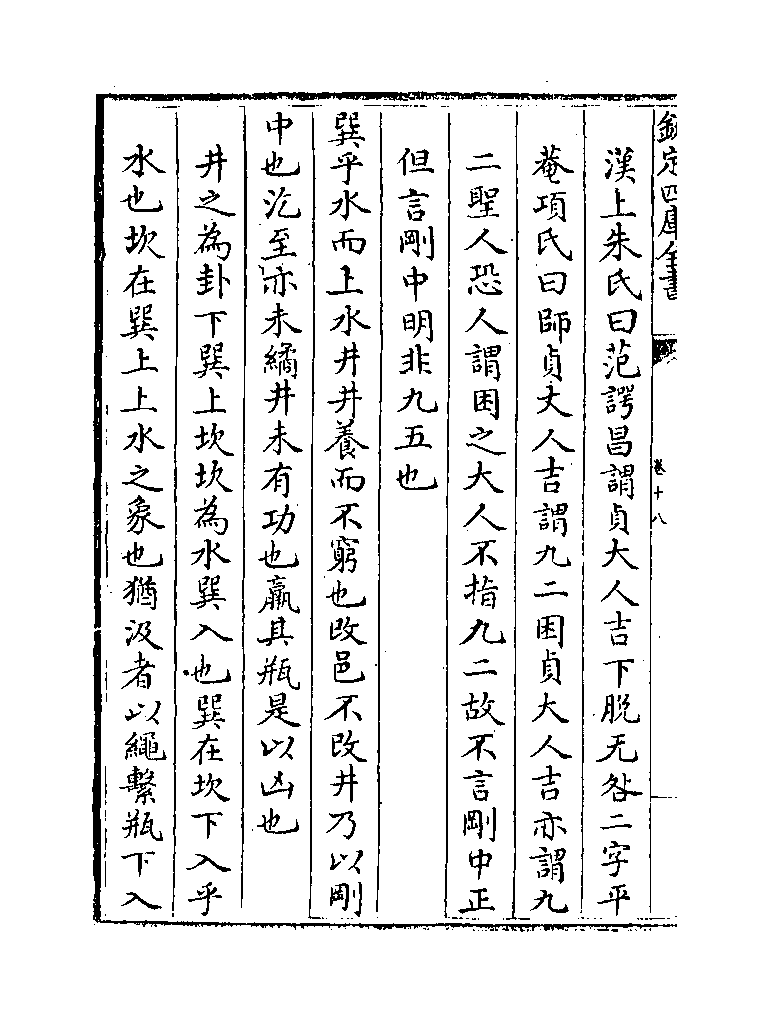 欽定四庫全書
卷十八
漢上朱氏曰范諤昌謂貞大人吉下脱无咎二字平
菴項氏曰師貞丈人吉謂九二困貞大人吉亦謂九
二聖人恐人謂困之大人不指九二故不言剛中正
但言剛中明非九五也
巽乎水而上水井井養而不窮也改邑不改井乃以剛
中也汔至亦未繘井未有功也羸其瓶是以凶也
井之為卦下巽上坎坎為水巽入也巽在坎下入乎
水也坎在巽上上水之象也猶汲者以繩繫瓶下入